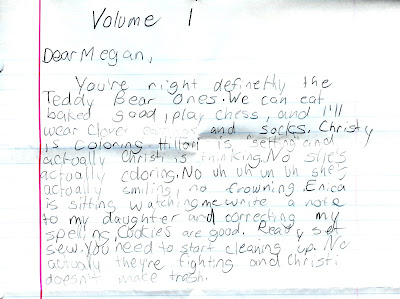 Volume 1
Dear Megan,
You're right definetly the
Teddy Bear Ones. We can eat
baked good, play chess, and I'll
wear Clover and socks. Christy
is coloring Hillari is setting and
actually Christi is thinking. No she's
actually coloring. No uh uh un uh she's
actually smiling, no frowning. Erica
is sitting watching me write a note
to my daughter and correcting my
spelling. Cookies are good. Ready set
sew. You need to start cleaning up. No
actually they're fighting and Christi
doesn't make trash.